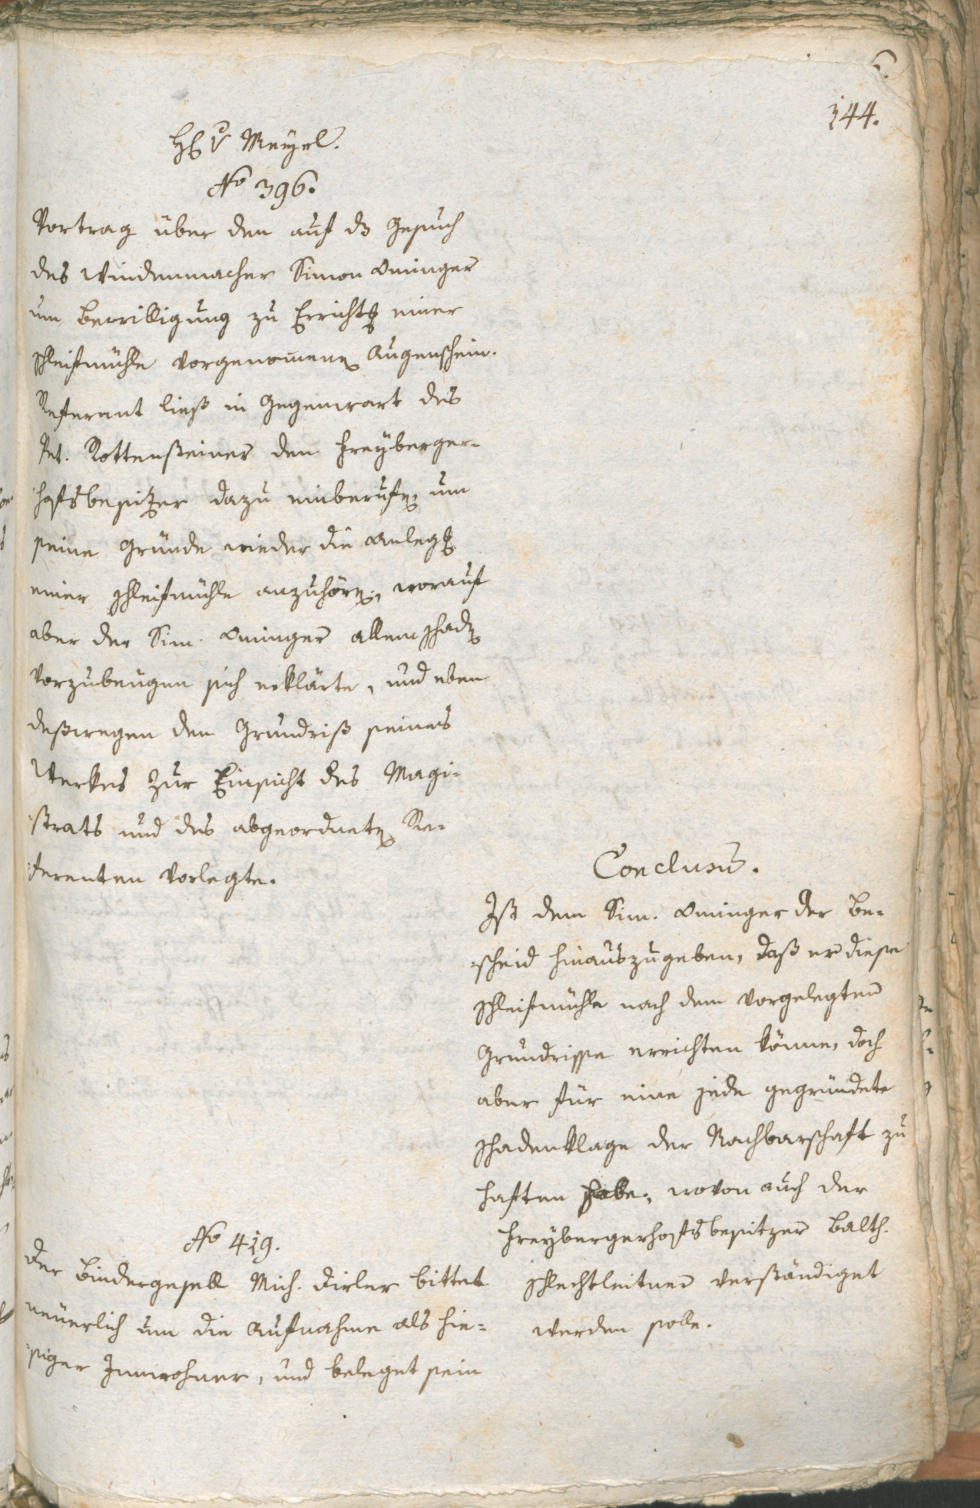 144.
H. v Mayrl.
No 396.
Vortrag über den auf ds Gesuch
des Windenmacher Simon Oeninger
um Bewilligung zu Erricht. einer
Schleifmühle vorgenomenen Augenschein.
Referent ließ in Gegenwart des
Pet. Rottensteiner den Freyberger-
hofsbesitzer dazu einberufen, um
seine Gründe wieder die Anleg.
einer Schleifmühle anzuhören, worauf
aber der Sim. Oeninger allem Schaden
vorzubeugen sich erklärte, und eben
deßwegen den Grundriß seines
Werkes zur Einsicht des Magi-
strats und des abgeordneten Re-
ferenten vorlegte.
Conclusum.
Ist dem Sim. Oeninger der Be-
scheid hinauszugeben, daß er diese
Schleifmühle nach dem vorgelegten
Grundrisse errichten könne, doch
aber für eine jede gegründete
Schadenklage der Nachbarschaft zu
haften habe, wovon auch der
Freybergerhofsbesitzer Balth.
Schlechtleitner verständiget
werden solle.
No 419.
Der Bindergesell Mich. Dirler bittet
neuerlich um die Aufnahme als hie-
siger Innwohner, und beleget sein